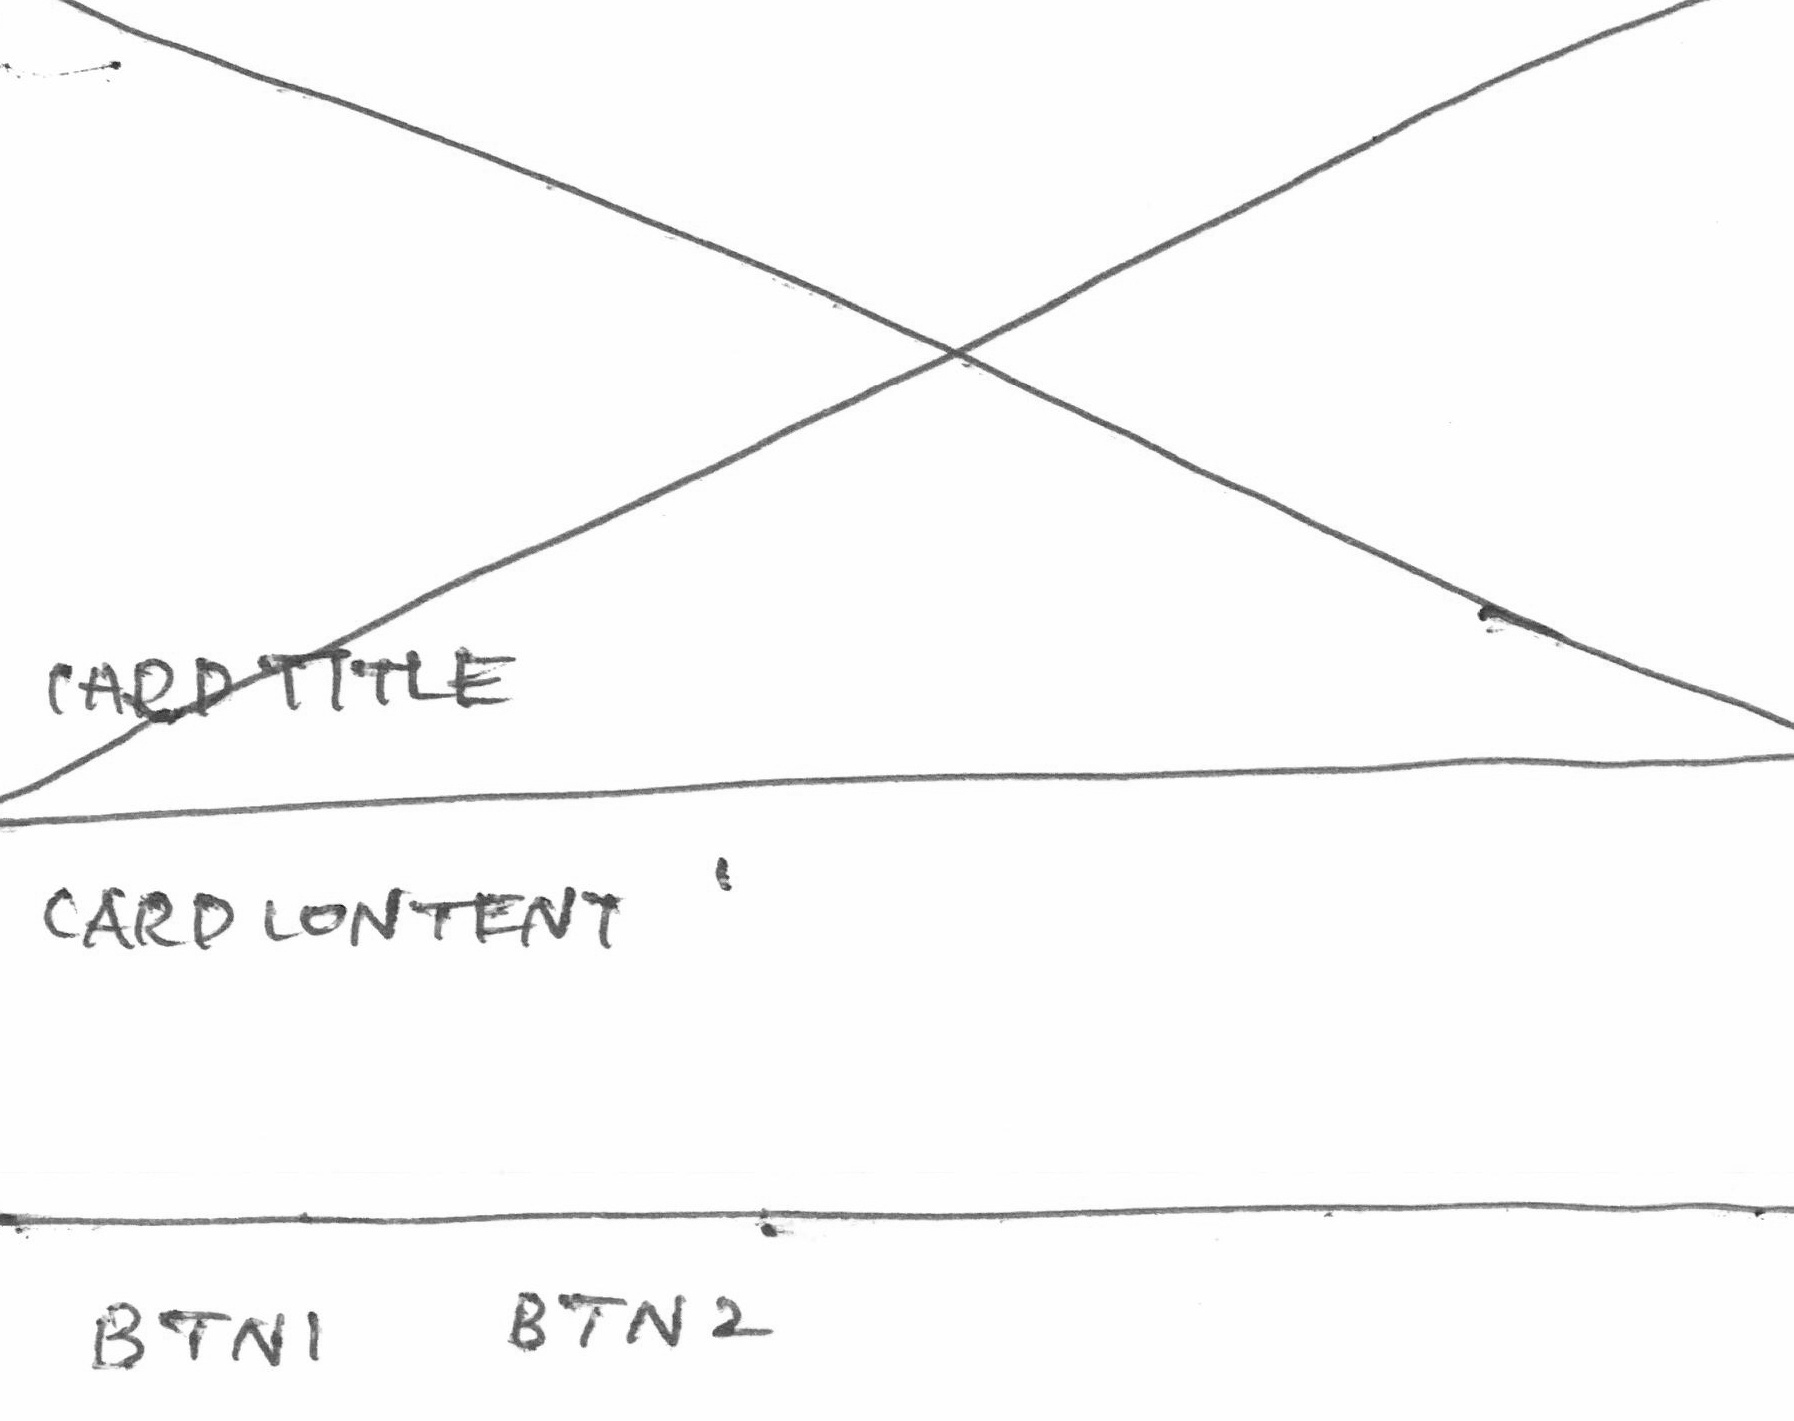 CARD TITLE
CARD CONTENT
BTN1 BTN2